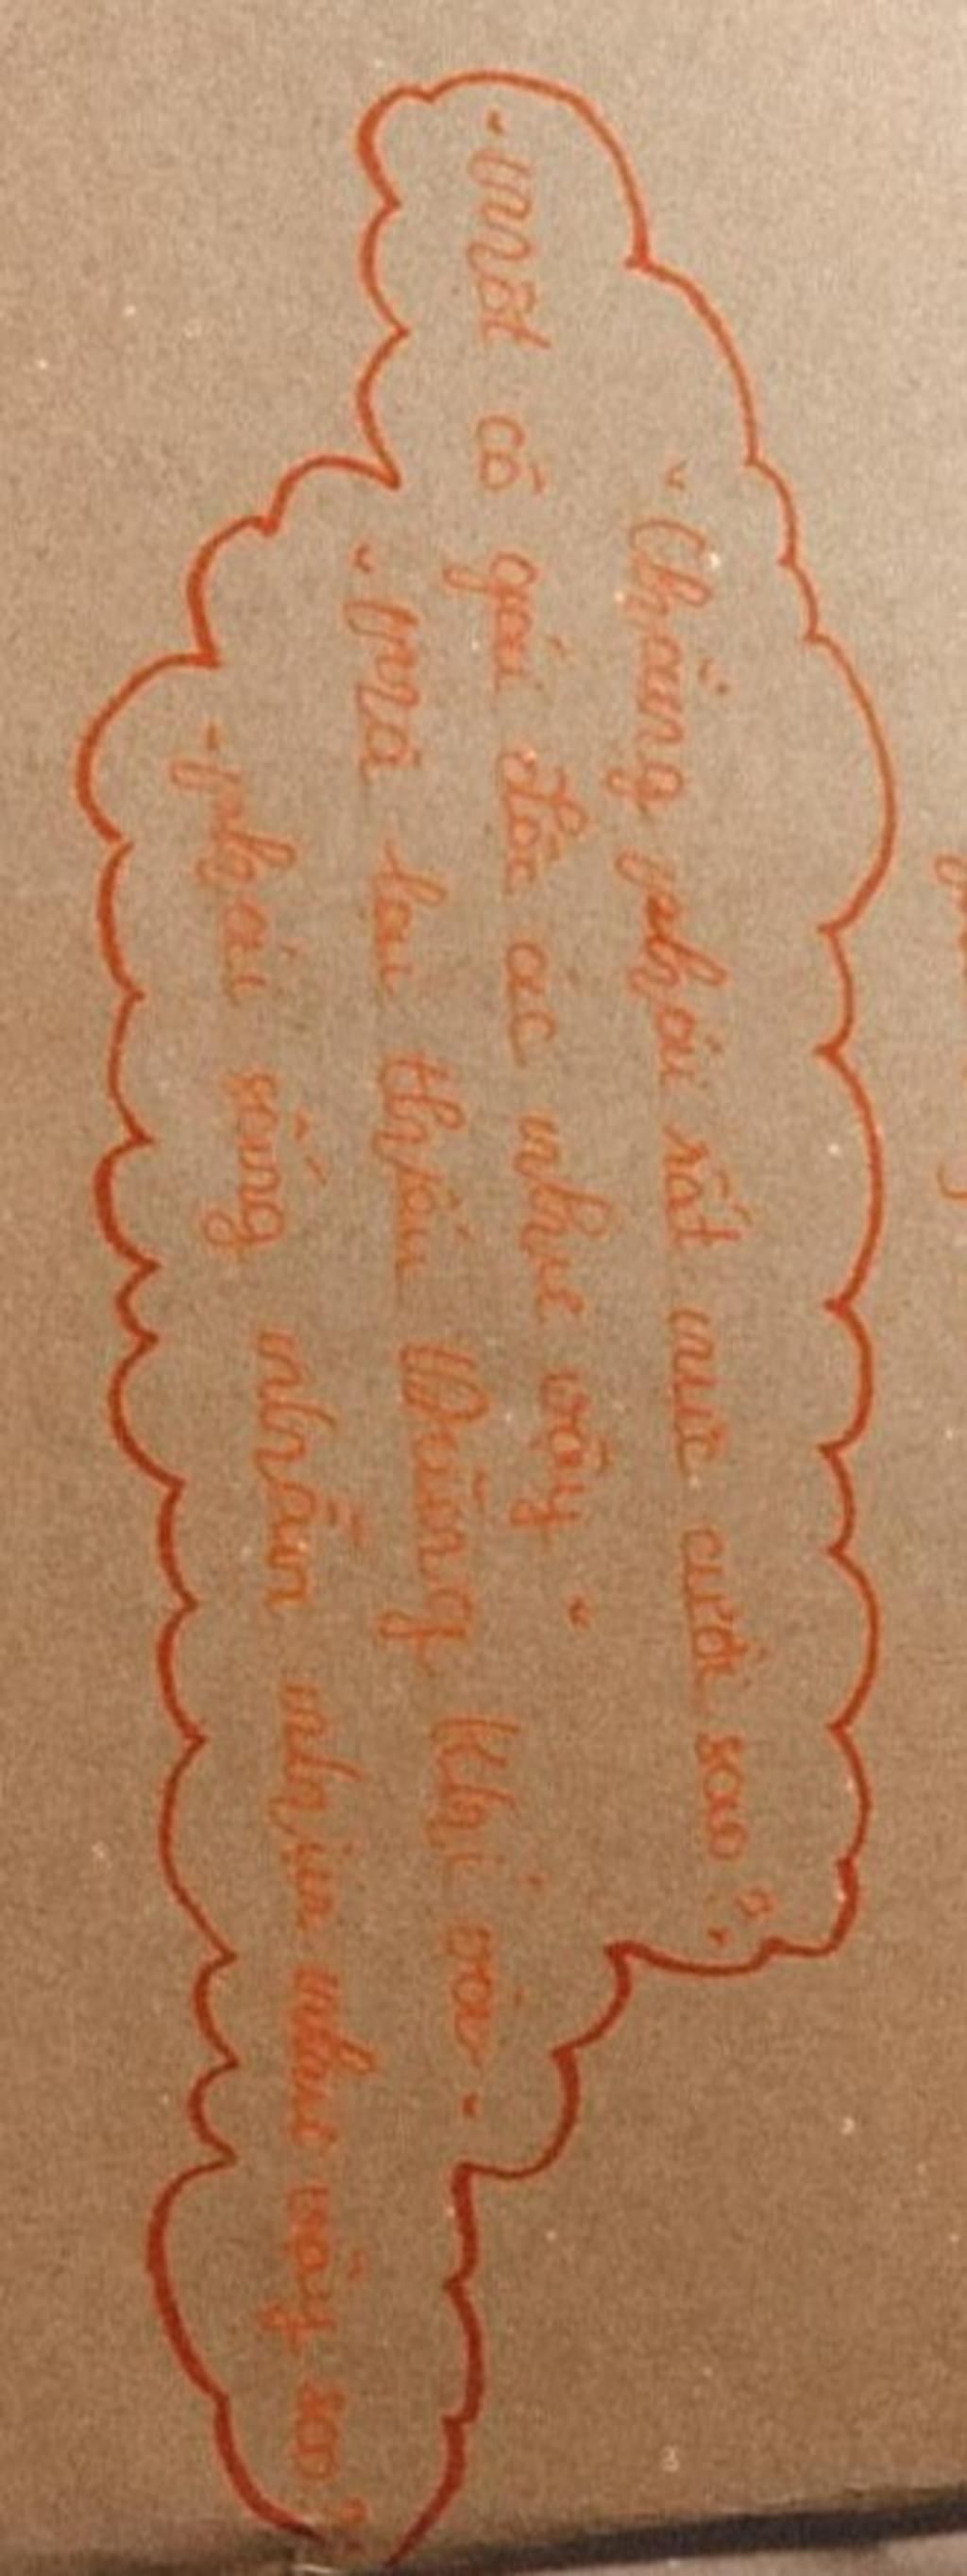 - Chẳng phải rất nực cười sao?
- một cô gái độc ác như vậy.
- mà lại thấu Đừng khi vở.
- phải sống nhẫn nhịn như vậy sao?